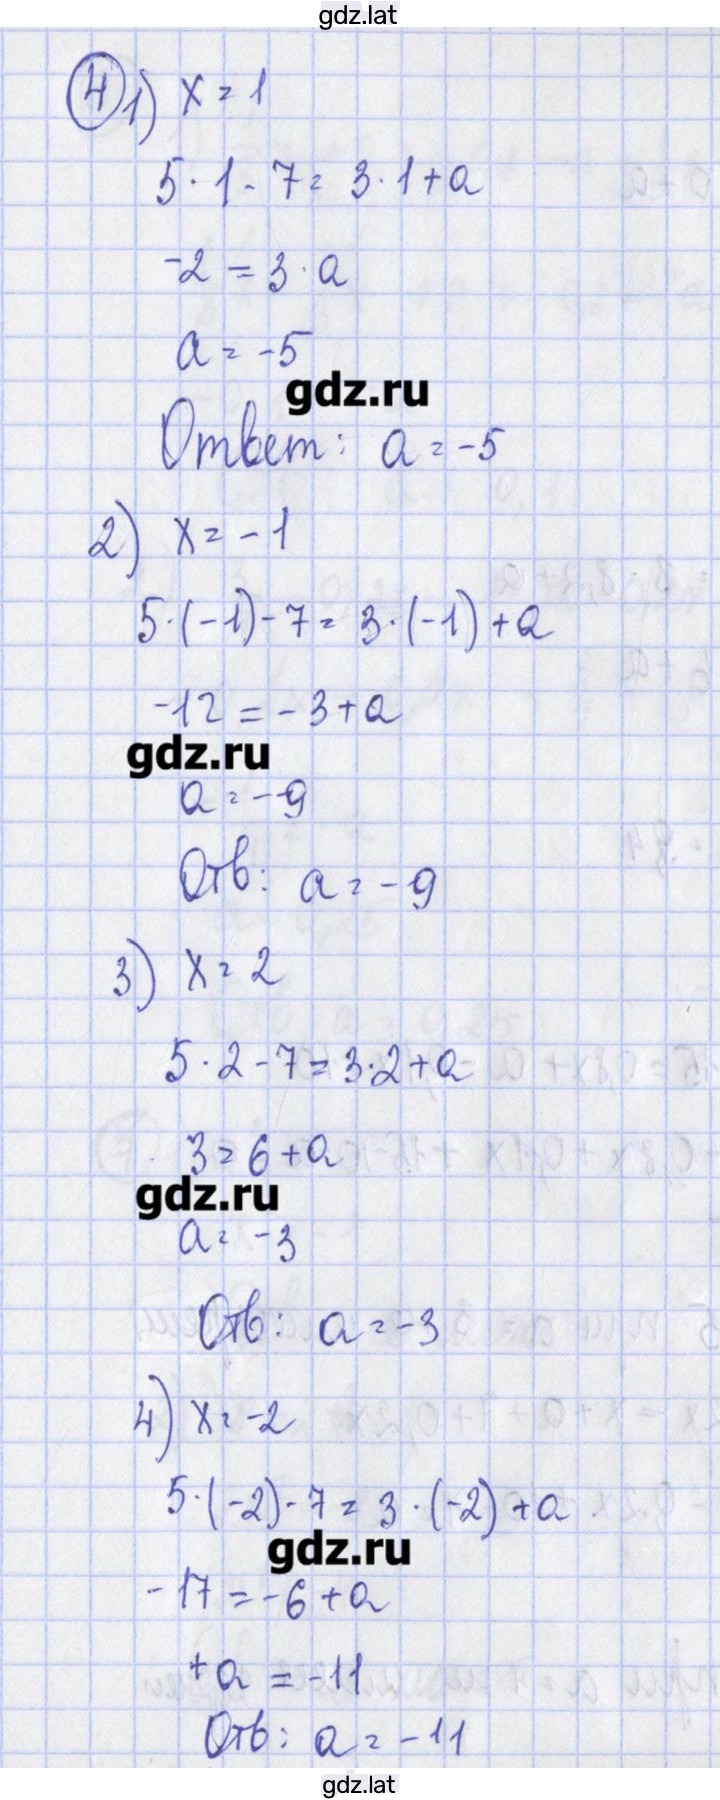 gdz.lat
4 1) x = 1
5·1 - 7 = 3·1 + a
-2 = 3·a
a = -5
gdz.ru
Ответ: a = -5
2) x = -1
5·(-1) - 7 = 3·(-1) + a
-12 = -3 + a
gdz.ru
a = -9
Отв: a = -9
3) x = 2
5·2 - 7 = 3·2 + a
3 = 6 + a
gdz.ru
a = -3
Отв: a = -3
4) x = -2
5·(-2) - 7 = 3·(-2) + a
gdz.ru
-17 = -6 + a
+a = -11
Отв: a = -11
gdz.lat